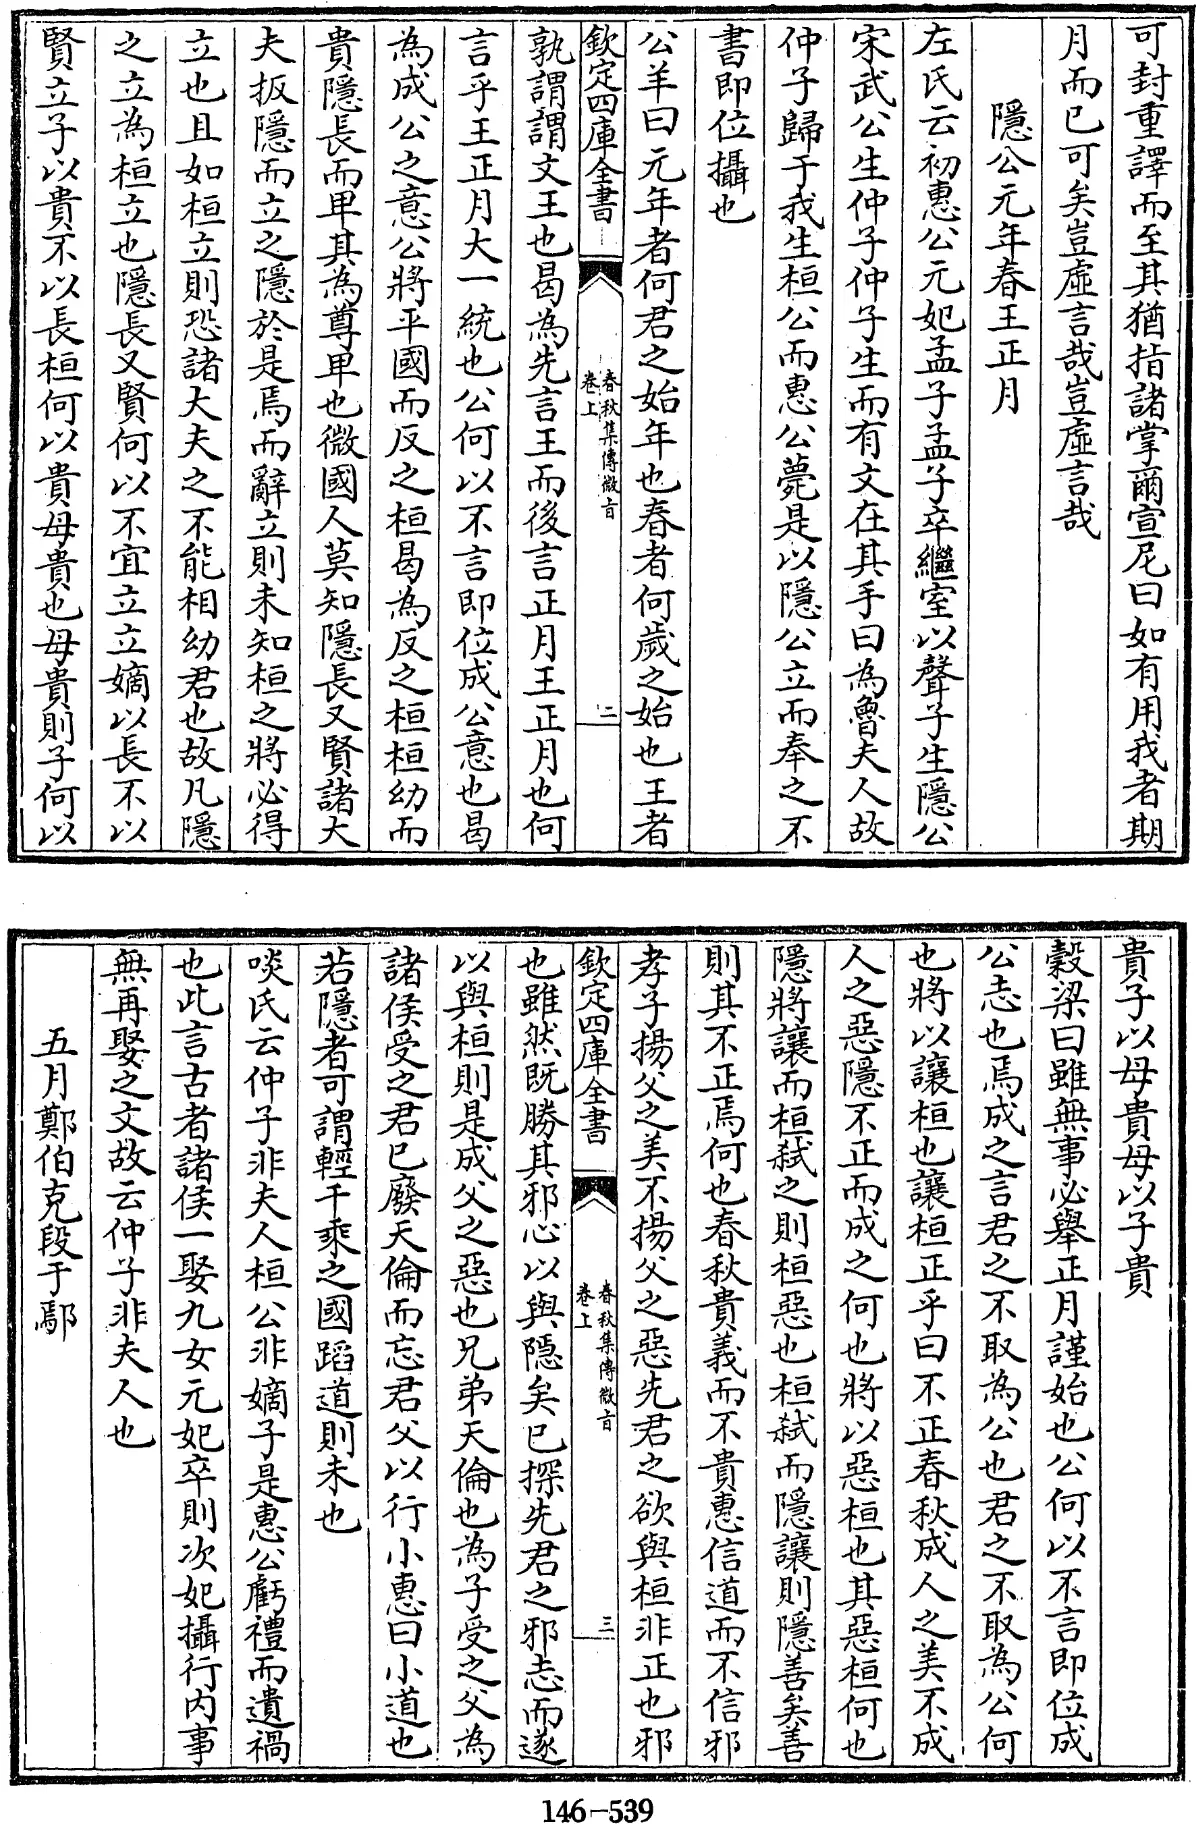 可封重譯而至其猶指諸掌爾宣尼曰如有用我者期
月而已可矣豈虛言哉豈虛言哉
隱公元年春王正月
左氏云初惠公元妃孟子孟子卒繼室以聲子生隱公
宋武公生仲子仲子生而有文在其手曰為魯夫人故
仲子歸于我生桓公而惠公薨是以隱公立而奉之不
書即位攝也
公羊曰元年者何君之始年也春者何歲之始也王者
欽定四庫全書
春秋集傳微旨
卷上
二
孰謂謂文王也曷為先言王而後言正月王正月也何
言乎王正月大一統也公何以不言即位成公意也曷
為成公之意公將平國而反之桓曷為反之桓桓幼而
貴隱長而卑其為尊卑也微國人莫知隱長又賢諸大
夫扳隱而立之隱於是焉而辭立則未知桓之將必得
立也且如桓立則恐諸大夫之不能相幼君也故凡隱
之立為桓立也隱長又賢何以不宜立立嫡以長不以
賢立子以貴不以長桓何以貴母貴也母貴則子何以
貴子以母貴母以子貴
穀梁曰雖無事必舉正月謹始也公何以不言即位成
公志也焉成之言君之不取為公也君之不取為公何
也將以讓桓也讓桓正乎曰不正春秋成人之美不成
人之惡隱不正而成之何也將以惡桓也其惡桓何也
隱將讓而桓弒之則桓惡也桓弒而隱讓則隱善矣善
則其不正焉何也春秋貴義而不貴惠信道而不信邪
孝子揚父之美不揚父之惡先君之欲與桓非正也邪
欽定四庫全書
春秋集傳微旨
卷上
三
也雖然既勝其邪心以與隱矣已探先君之邪志而遂
以與桓則是成父之惡也兄弟天倫也為子受之父為
諸侯受之君已廢天倫而忘君父以行小惠曰小道也
若隱者可謂輕千乘之國蹈道則未也
啖氏云仲子非夫人桓公非嫡子是惠公虧禮而遺禍
也此言古者諸侯一娶九女元妃卒則次妃攝行內事
無再娶之文故云仲子非夫人也
五月鄭伯克段于鄢
146-539